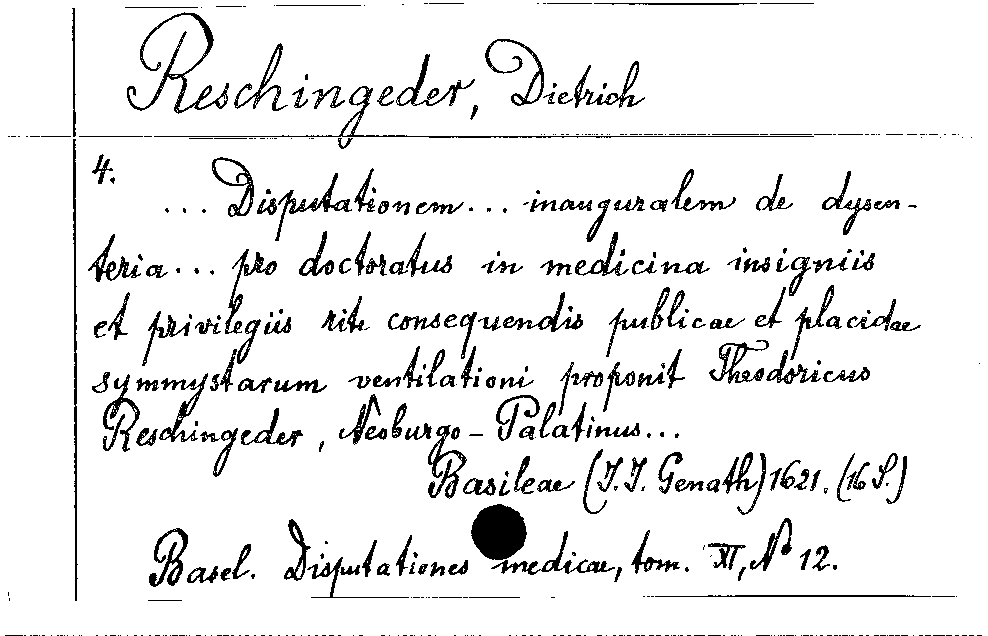 Reschingeder, Dietrich
4.
... Disputationem... inauguralem de dysen-
teria... pro doctoratus in medicina insigniis
et privilegiis rite consequendis publicae et placidae
symmystarum ventilationi proponit Theodoricus
Reschingeder, Neoburgo-Palatinus...
Basileae (J.J. Genath) 1621. (16 S.)
Basel. Disputationes medicae, tom. XI, No 12.